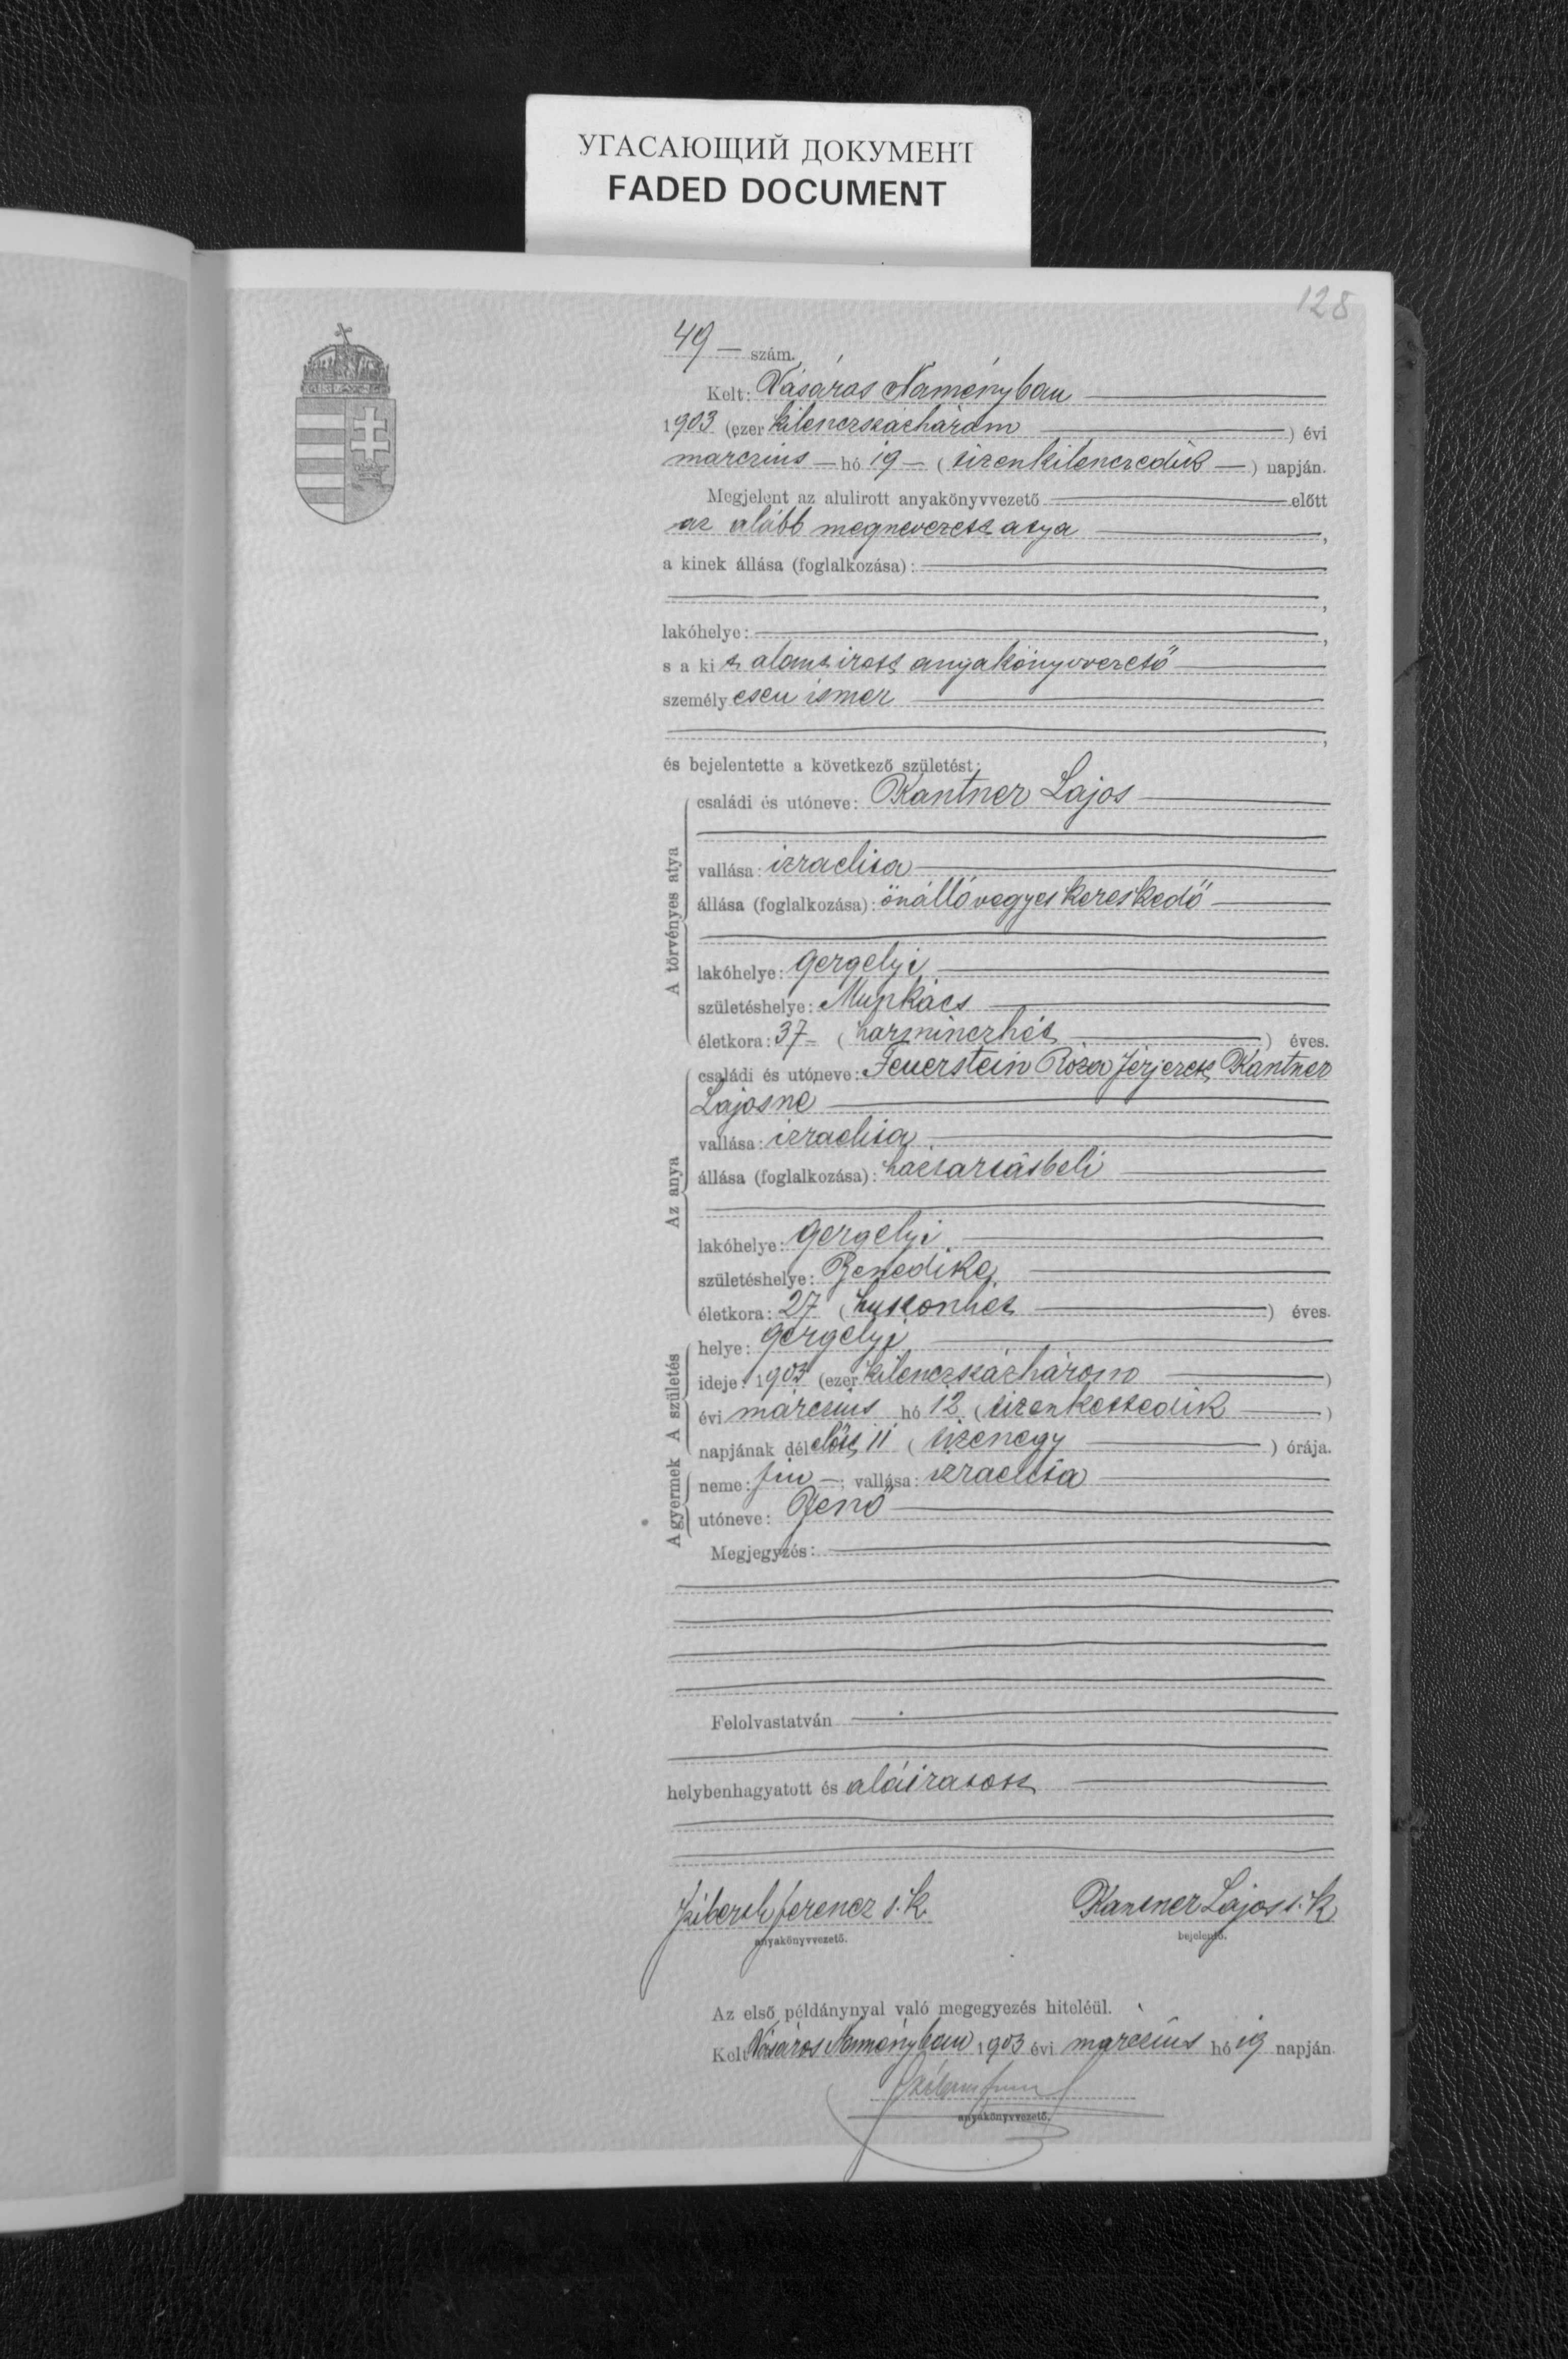 УГАСАЮЩИЙ ДОКУМЕНТ
FADED DOCUMENT
128
49 — szám.
Kelt: Vásáros Naményban
1903 (ezer kilenczszázhárom) évi
marczius — hó 19 — (tizenkilenczedik —) napján.
Megjelent az alulirott anyakönyvvezető előtt
az alább megnevezett atya,
a kinek állása (foglalkozása):
lakóhelye:
s a kit alant irott anyakönyvvezető
személyesen ismer
és bejelentette a következő születést:
A törvényes atya
családi és utóneve: Kantner Lajos
vallása: izraelita
állása (foglalkozása): önálló vegyes kereskedő
lakóhelye: Gergelyi
születéshelye: Munkács
életkora: 37 — (harminczhét) éves.
Az anya
családi és utóneve: Feuerstein Róza férjezett Kantner
Lajosné
vallása: izraelita
állása (foglalkozása): háztartásbeli
lakóhelye: Gergelyi
születéshelye: Benedike
életkora: 27 (huszonhét) éves.
A születés
helye: Gergelyi
ideje: 1903 (ezer kilenczszázhárom)
évi márczius hó 12 (tizenkettedik —)
napjának délelőtt 11 (tizenegy) órája.
A gyermek
neme: fiu —; vallása: izraelita
utóneve: Jenő
Megjegyzés:
Felolvastatván
helybenhagyatott és aláiratott
Ferencz s. k. Kantner Lajos s. k.
anyakönyvvezető. bejelentő.
Az első példánynyal való megegyezés hiteléül.
Kelt Vásáros Naményban 1903 évi márczius hó 19 napján.
anyakönyvvezető.